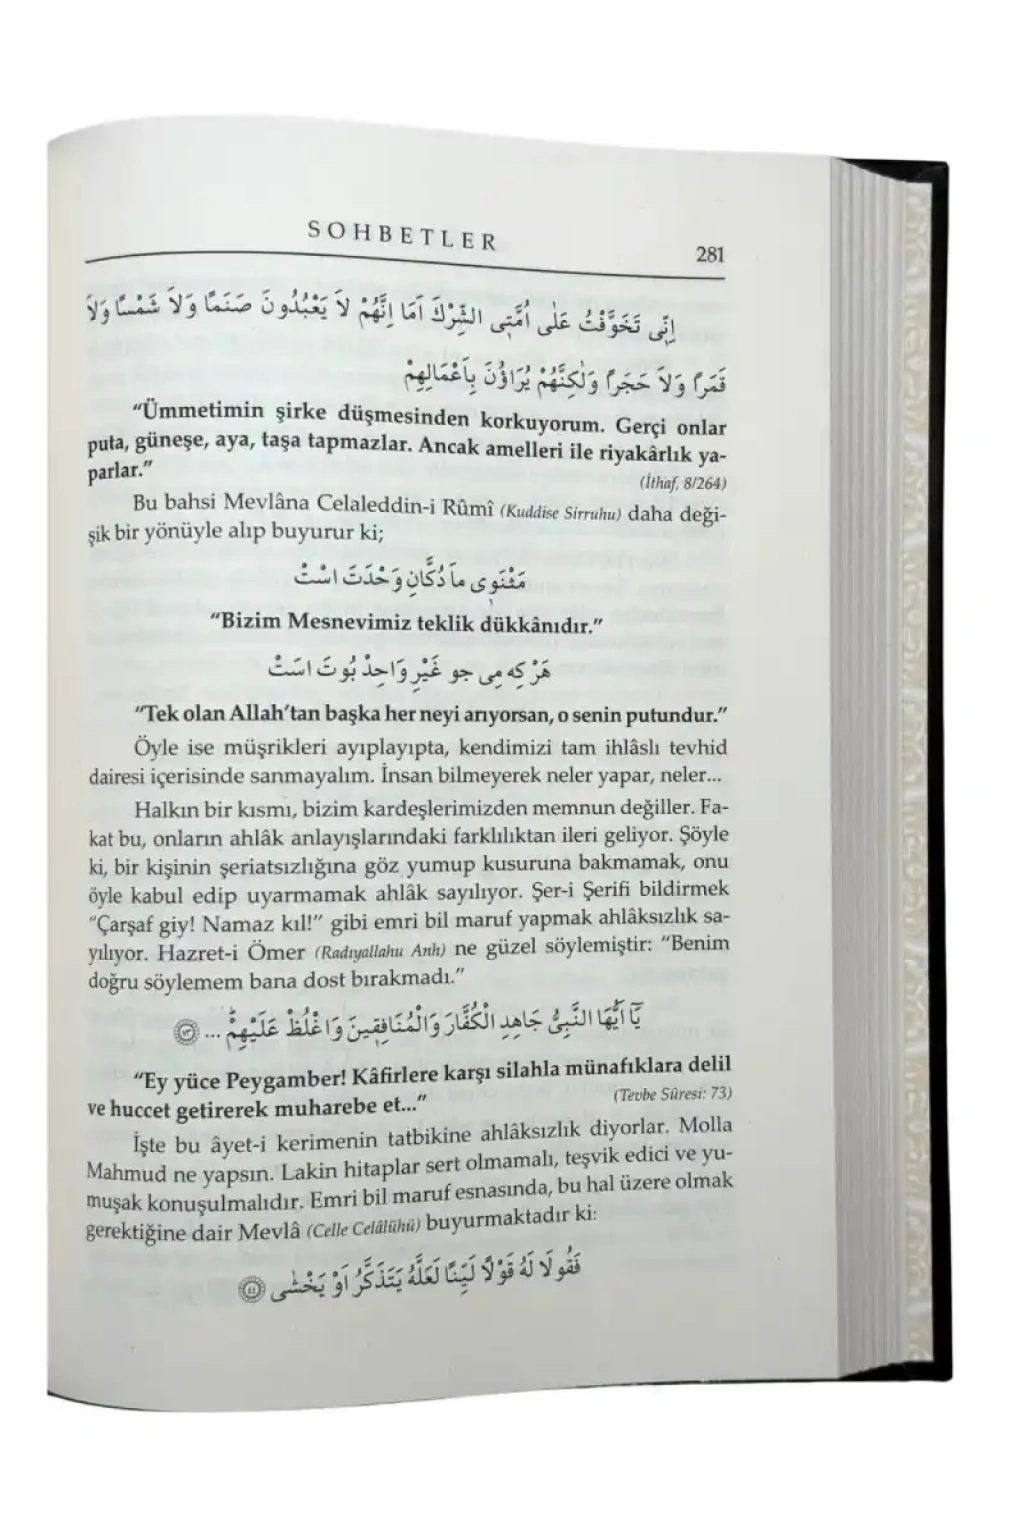 SOHBETLER
281
اِنّ۪ى تَخَوَّفْتُ عَلٰى اُمَّت۪ى الشِّرْكَ اَمَا اِنَّهُمْ لَا يَعْبُدُونَ صَنَمًا وَلَا شَمْسًا وَلَا
قَمَرًا وَلَا حَجَرًا وَلٰكِنَّهُمْ يُرَاؤُنَ بِاَعْمَالِهِمْ
“Ümmetimin şirke düşmesinden korkuyorum. Gerçi onlar
puta, güneşe, aya, taşa tapmazlar. Ancak amelleri ile riyakârlık ya-
parlar.” (İthaf, 8/264)
Bu bahsi Mevlâna Celaleddin-i Rûmî (Kuddise Sirruhu) daha deği-
şik bir yönüyle alıp buyurur ki;
مَثْنَو۪ى مَا دُكَّانِ وَحْدَتَ اسْتْ
“Bizim Mesnevimiz teklik dükkânıdır.”
هَرْ كِه م۪ى جو غَيْرِ وَاحِدْ بُوتَ اسَتْ
“Tek olan Allah’tan başka her neyi arıyorsan, o senin putundur.”
Öyle ise müşrikleri ayıplayıpta, kendimizi tam ihlâslı tevhid
dairesi içerisinde sanmayalım. İnsan bilmeyerek neler yapar, neler...
Halkın bir kısmı, bizim kardeşlerimizden memnun değiller. Fa-
kat bu, onların ahlâk anlayışlarındaki farklılıktan ileri geliyor. Şöyle
ki, bir kişinin şeriatsızlığına göz yumup kusuruna bakmamak, onu
öyle kabul edip uyarmamak ahlâk sayılıyor. Şer-i Şerifi bildirmek
“Çarşaf giy! Namaz kıl!” gibi emri bil maruf yapmak ahlâksızlık sa-
yılıyor. Hazret-i Ömer (Radıyallahu Anh) ne güzel söylemiştir: “Benim
doğru söylemem bana dost bırakmadı.”
يَٓا اَيُّهَا النَّبِىُّ جَاهِدِ الْكُفَّارَ وَالْمُنَافِق۪ينَ وَاغْلُظْ عَلَيْهِمْ ... ﴿٧٣﴾
“Ey yüce Peygamber! Kâfirlere karşı silahla münafıklara delil
ve huccet getirerek muharebe et...” (Tevbe Sûresi: 73)
İşte bu âyet-i kerimenin tatbikine ahlâksızlık diyorlar. Molla
Mahmud ne yapsın. Lakin hitaplar sert olmamalı, teşvik edici ve yu-
muşak konuşulmalıdır. Emri bil maruf esnasında, bu hal üzere olmak
gerektiğine dair Mevlâ (Celle Celâlühü) buyurmaktadır ki:
فَقُولَا لَهُ قَوْلًا لَيِّنًا لَعَلَّهُ يَتَذَكَّرُ اَوْ يَخْشٰى ﴿٤٤﴾